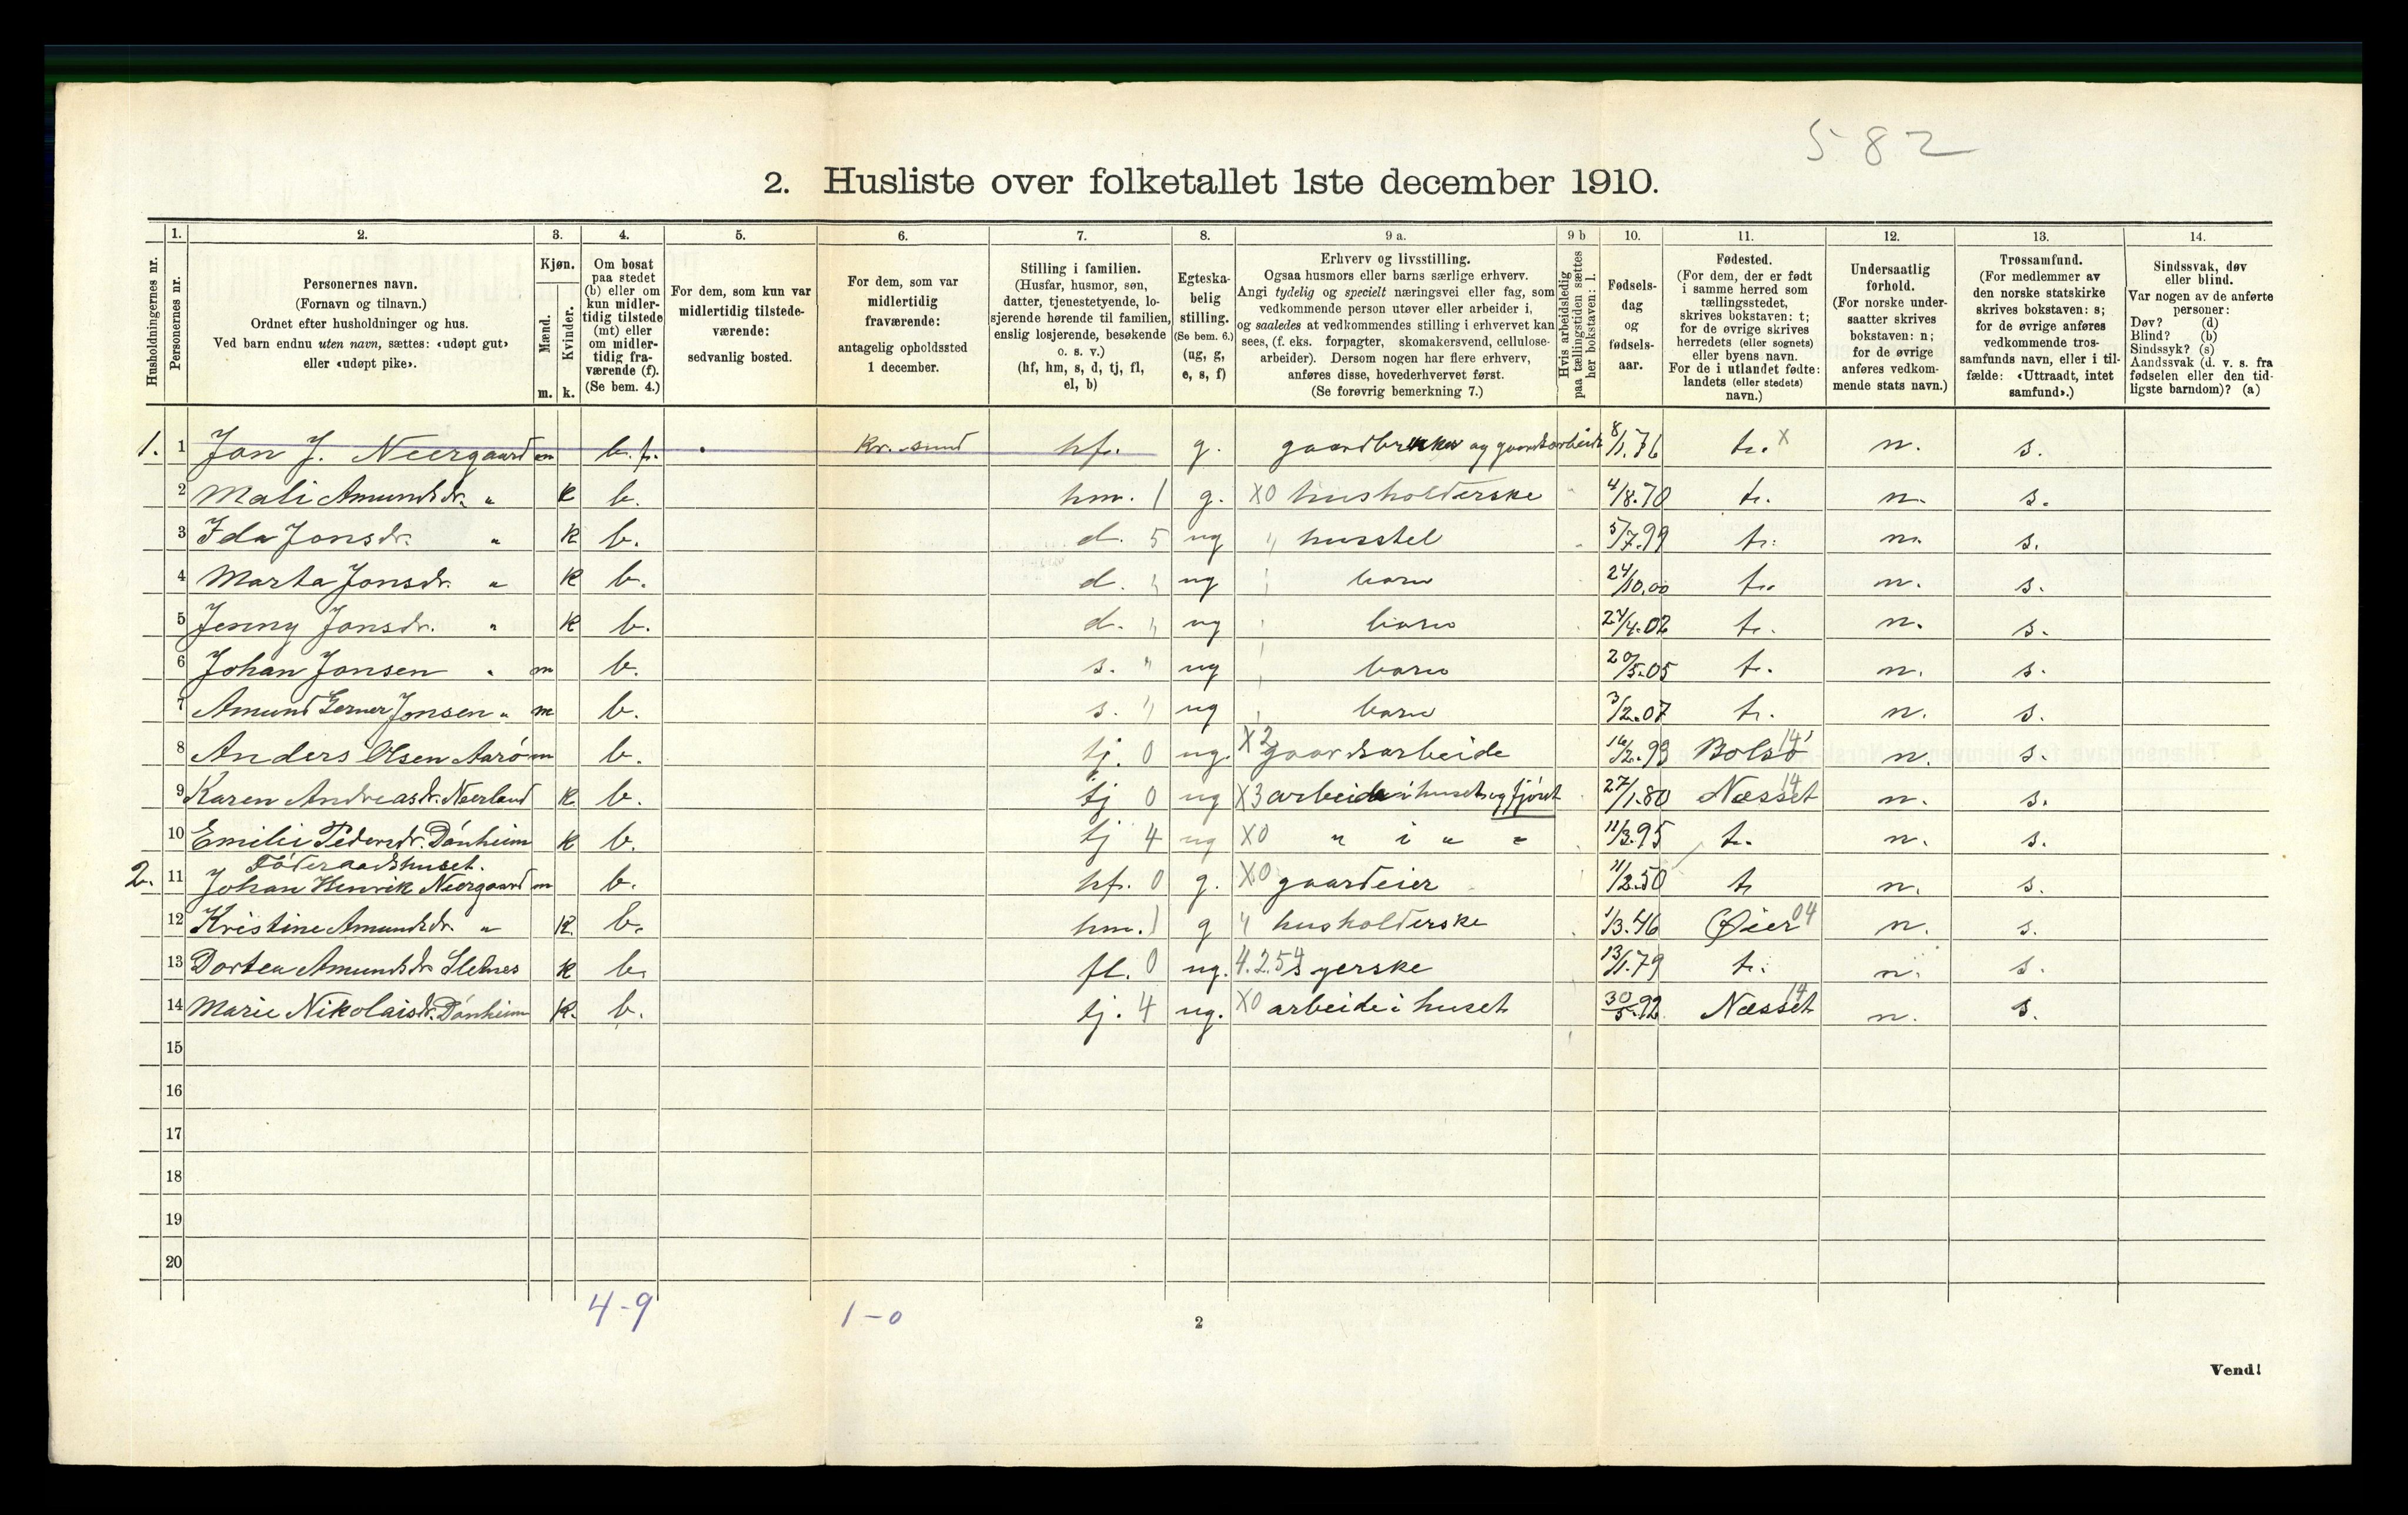 582
2. Husliste over folketallet 1ste december 1910.
Husholdningernes nr.
1. Personernes nr.
2. Personernes navn.
(Fornavn og tilnavn.)
Ordnet efter husholdninger og hus.
Ved barn endnu uten navn, sættes: «udøpt gut»
eller «udøpt pike».
3. Kjøn.
Mænd. m.
Kvinder. k.
4. Om bosat
paa stedet
(b) eller om
kun midler-
tidig tilstede
(mt) eller
om midler-
tidig fra-
værende (f).
(Se bem. 4.)
5. For dem, som kun var
midlertidig tilstede-
værende:
sedvanlig bosted.
6. For dem, som var
midlertidig
fraværende:
antagelig opholdssted
1 december.
7. Stilling i familien.
(Husfar, husmor, søn,
datter, tjenestetyende, lo-
sjerende hørende til familien,
enslig losjerende, besøkende
o. s. v.)
(hf, hm, s, d, tj, fl,
el, b)
8. Egteska-
belig
stilling.
(Se bem. 6.)
(ug, g,
e, s, f)
9 a. Erhverv og livsstilling.
Ogsaa husmors eller barns særlige erhverv.
Angi tydelig og specielt næringsvei eller fag, som
vedkommende person utøver eller arbeider i,
og saaledes at vedkommendes stilling i erhvervet kan
sees, (f. eks. forpagter, skomakersvend, cellulose-
arbeider). Dersom nogen har flere erhverv,
anføres disse, hovederhvervet først.
(Se forøvrig bemerkning 7.)
9 b Hvis arbeidsledig
paa tællingstiden sættes
her bokstaven: l.
10. Fødsels-
dag
og
fødsels-
aar.
11. Fødested.
(For dem, der er født
i samme herred som
tællingsstedet,
skrives bokstaven: t;
for de øvrige skrives
herredets (eller sognets)
eller byens navn.
For de i utlandet fødte:
landets (eller stedets)
navn.)
12. Undersaatlig
forhold.
(For norske under-
saatter skrives
bokstaven: n;
for de øvrige
anføres vedkom-
mende stats navn.)
13. Trossamfund.
(For medlemmer av
den norske statskirke
skrives bokstaven: s;
for de øvrige anføres
vedkommende tros-
samfunds navn, eller i til-
fælde: «Uttraadt, intet
samfund».)
14. Sindssvak, døv
eller blind.
Var nogen av de anførte
personer:
Døv? (d)
Blind? (b)
Sindssyk? (s)
Aandssvak (d. v. s. fra
fødselen eller den tid-
ligste barndom)? (a)
1. 1 Jon J. Neergaard m b. f. kr. sund hf. g. gaardbruker og gaardsarbeide 8/1.76 t. x n. s.
2 Mali Amundsdr. " k b. hm. 1 g. X0 husholderske 4/8.70 t. n. s.
3 Ida Jonsdr. " k b. d. 5 ug " husstel 5/7.99 t. n. s.
4 Marta Jonsdr. " k b. d. " ug barn 24/10.00 t. n. s.
5 Jenny Jonsdr. " k b. d. " ug barn 24/4.02 t. n. s.
6 Johan Jonsen " m b. s. " ug barn 20/5.05 t. n. s.
7 Amund Gerner Jonsen " m b. s. " ug barn 3/2.07 t. n. s.
8 Anders Olsen Aarö m b. tj. 0 ug. X2 gaardsarbeide 16/2.93 Bolsö 14 n. s.
9 Karen Andreasdr. Neerland k b. tj 0 ug X3 arbeide i huset og fjöset 27/1.80 Næsset 14 n. s.
10 Emilie Pedersdr. Dönheim k b. tj 4 ug X0 " i " " 11/3.95 t. n. s.
Föderaadshuset.
2. 11 Johan Henrik Neergaard m b. hf. 0 g. X0 gaardeier 11/2.50 t n. s.
12 Kristine Amundsdr. " k. b. hm. 1 g " husholderske 1/3.46 Øier 04 n. s.
13 Dortea Amundsdr. Sletnes k b. fl. 0 ug. 4.2.54 syerske 13/1.79 t. n. s.
14 Marie Nikolaisdr. Dönheim k. b. tj. 4 ug. X0 arbeide i huset 30/5.92 Næsset 14 n. s.
15
16
17
18
19
20
4-9 1-0
2
Vend!